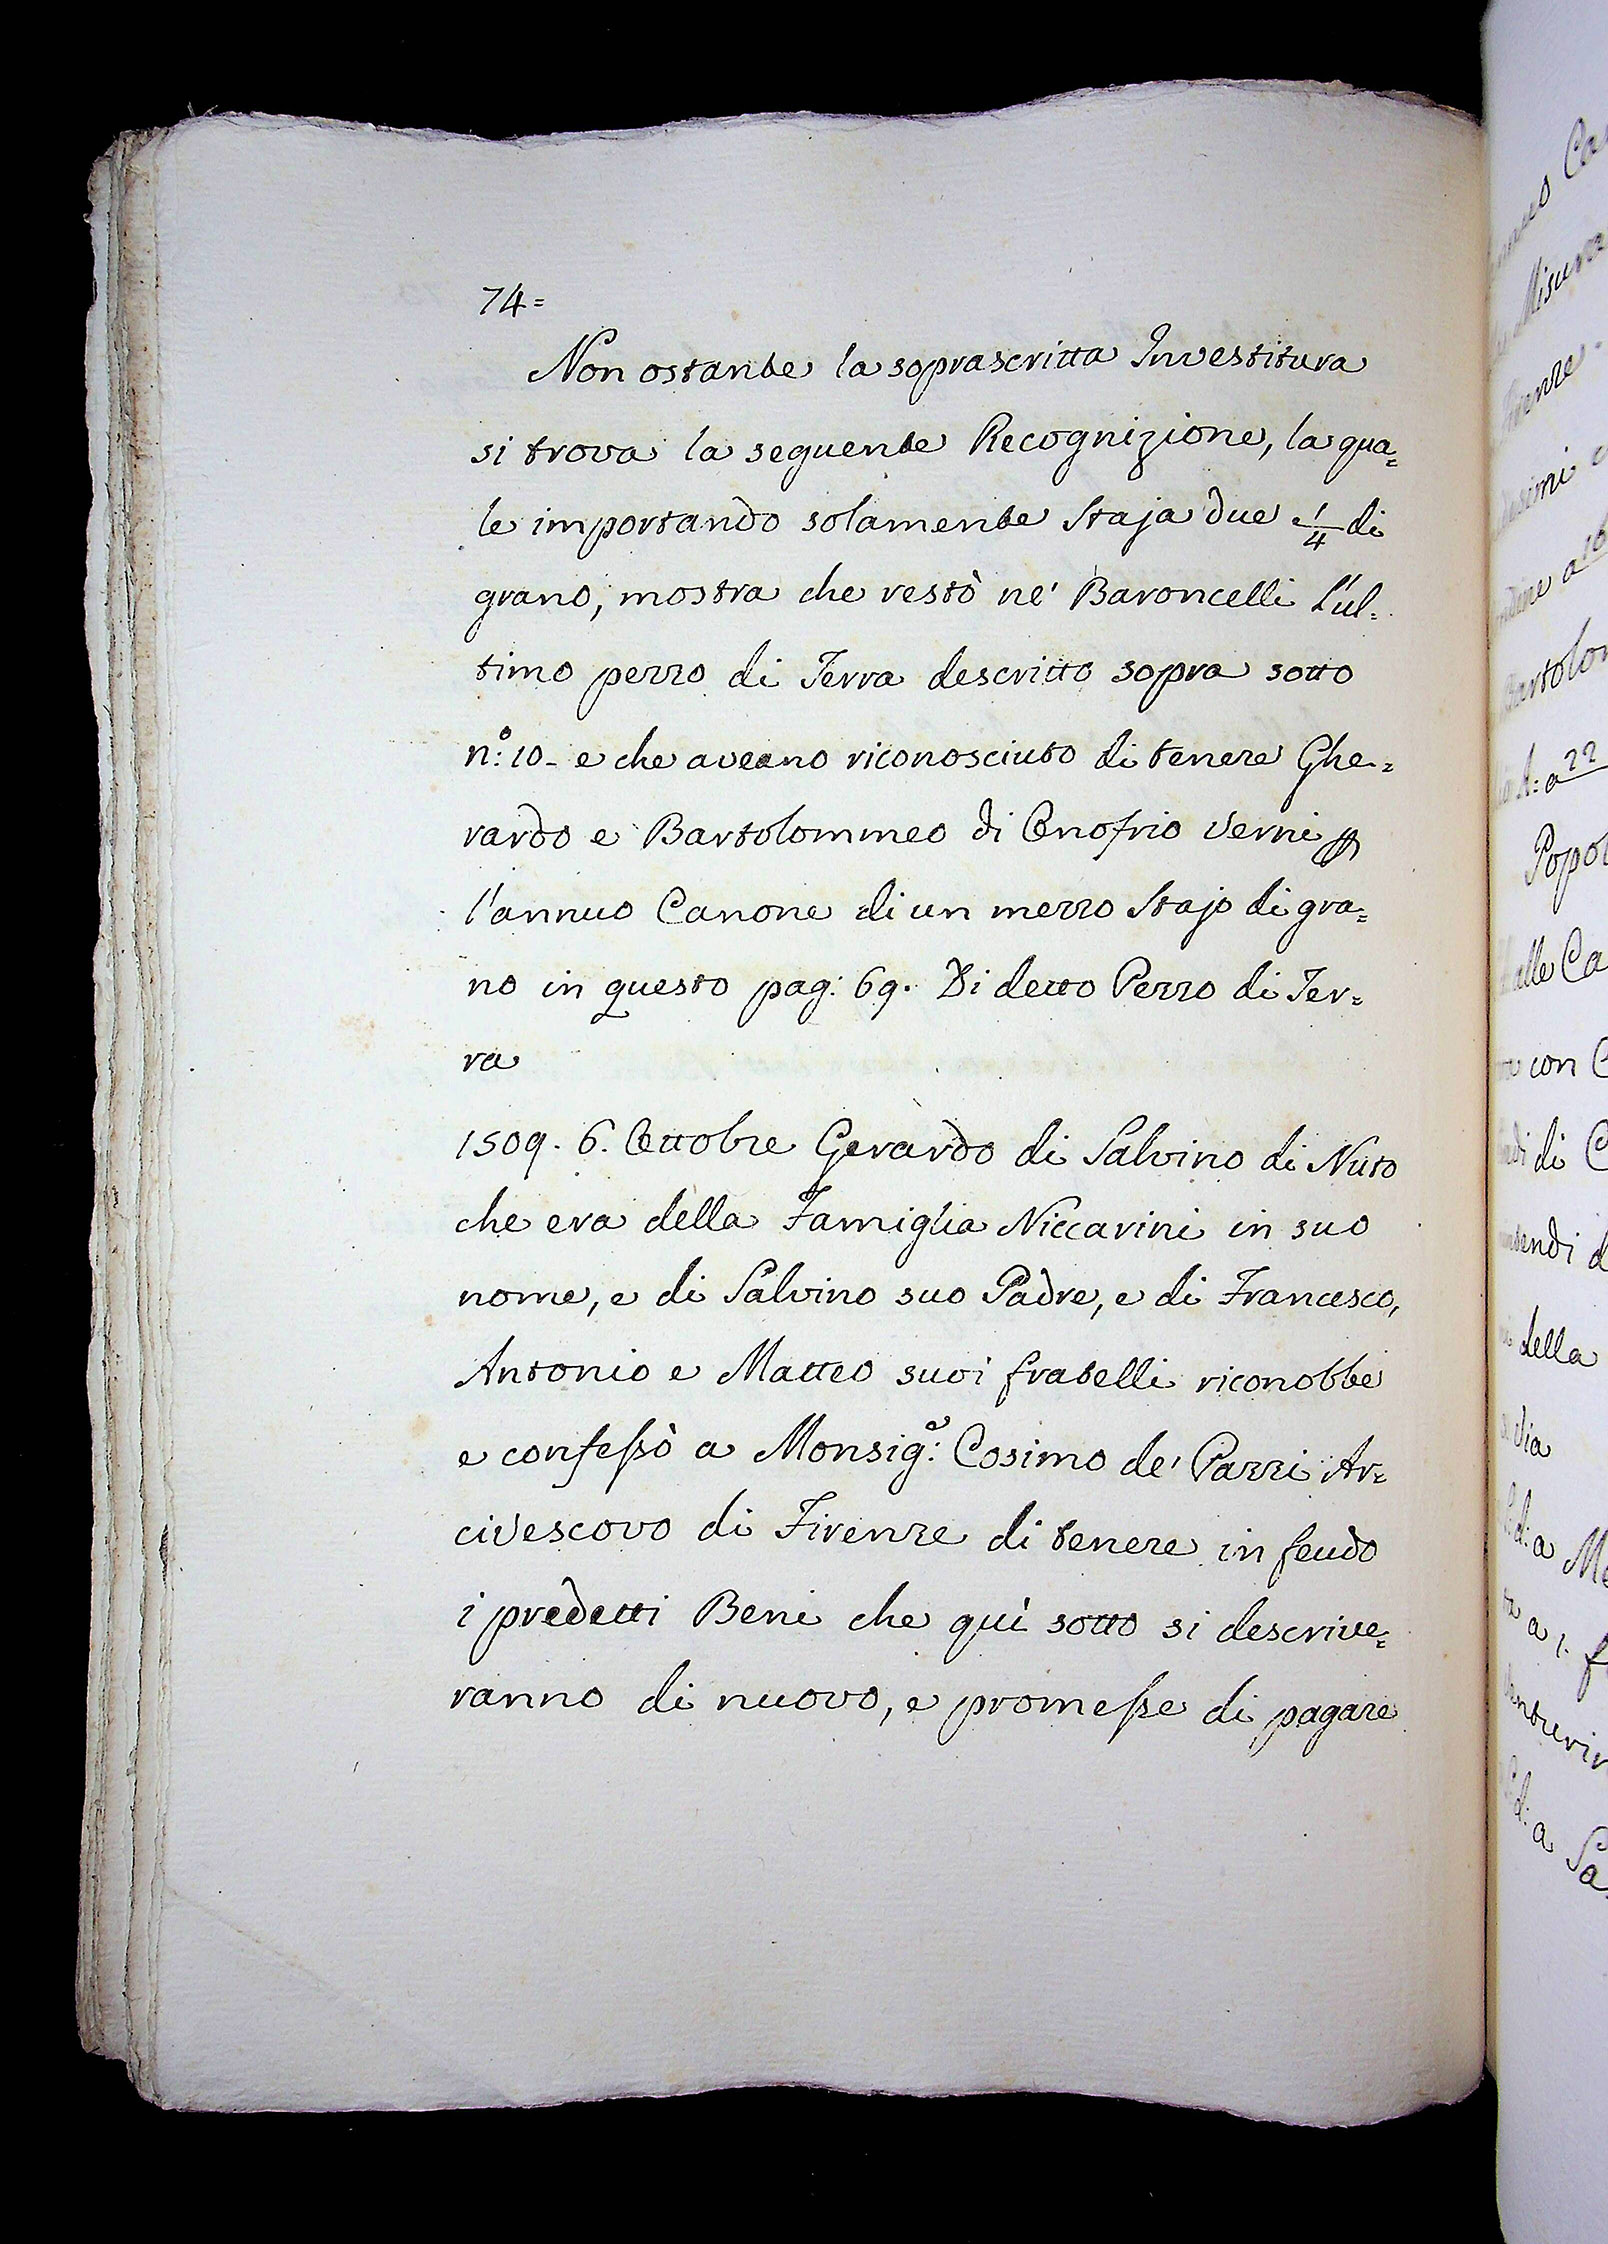 74=
Non ostante la soprascritta Investitura
si trova la seguente Recognizione, la qua=
le importando solamente Staja due e 1/4 di
grano, mostra che restò ne' Baroncelli l'ul=
timo pezzo di Terra descritto sopra sotto
n.º 10- e che aveano riconosciuto di tenere Ghe=
rardo e Bartolommeo di Onofrio Verni
l'annuo Canone di un mezzo Stajo di gra=
no in questo pag: 69. Di detto Pezzo di Ter=
ra
1509. 6. Ottobre Gerardo di Salvino di Nuto
che era della Famiglia Niccarini in suo
nome, e di Salvino suo Padre, e di Francesco,
Antonio e Matteo suoi fratelli riconobbe
e confessò a Monsig.e: Cosimo de' Pazzi Ar=
civescovo di Firenze di tenere in feudo
i predetti Beni che quì sotto si descrive=
ranno di nuovo, e promesse di pagare
Misura
Popol
alle Ca
con C
di C
della
Via